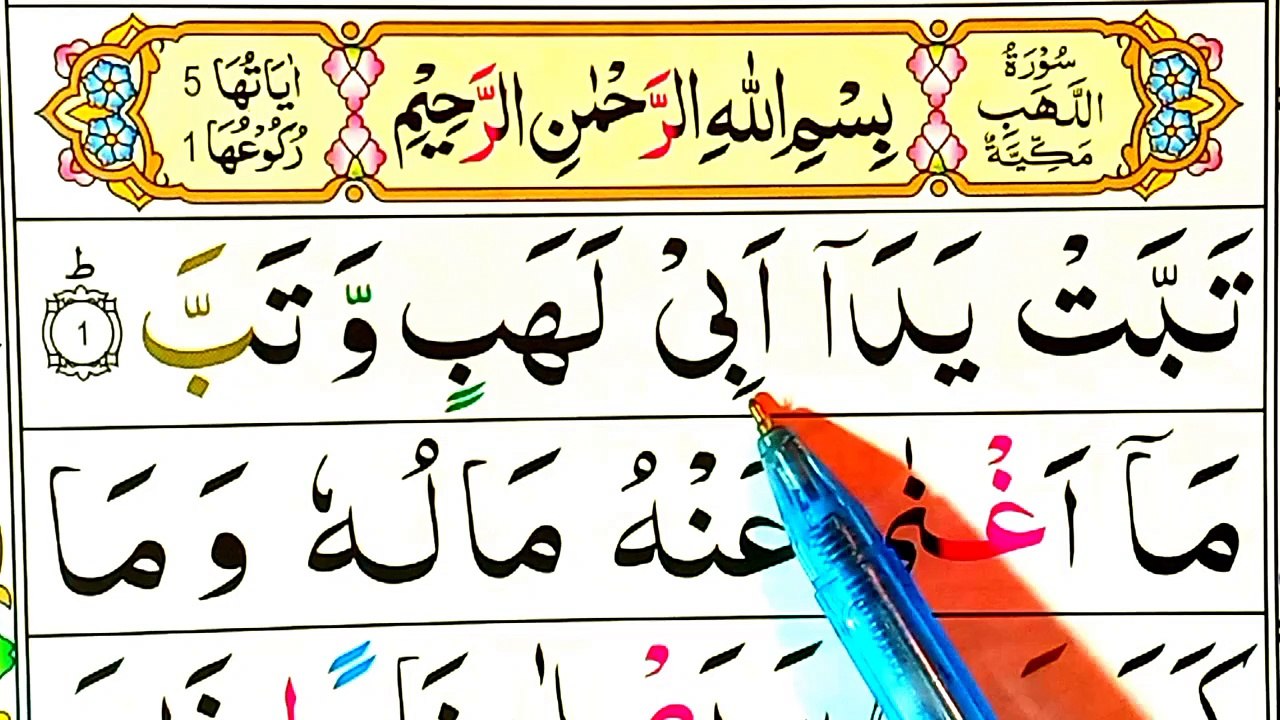 سُوْرَةُ
اللَّهَبِ
مَكِّيَّةٌ
بِسْمِ اللّٰهِ الرَّحْمٰنِ الرَّحِيْمِ
اٰيَاتُهَا 5
رُكُوْعُهَا 1
تَبَّتْ يَدَآ اَبِيْ لَهَبٍ وَّ تَبَّ ؕ 1
مَآ اَغْنٰى عَنْهُ مَالُهٗ وَ مَا